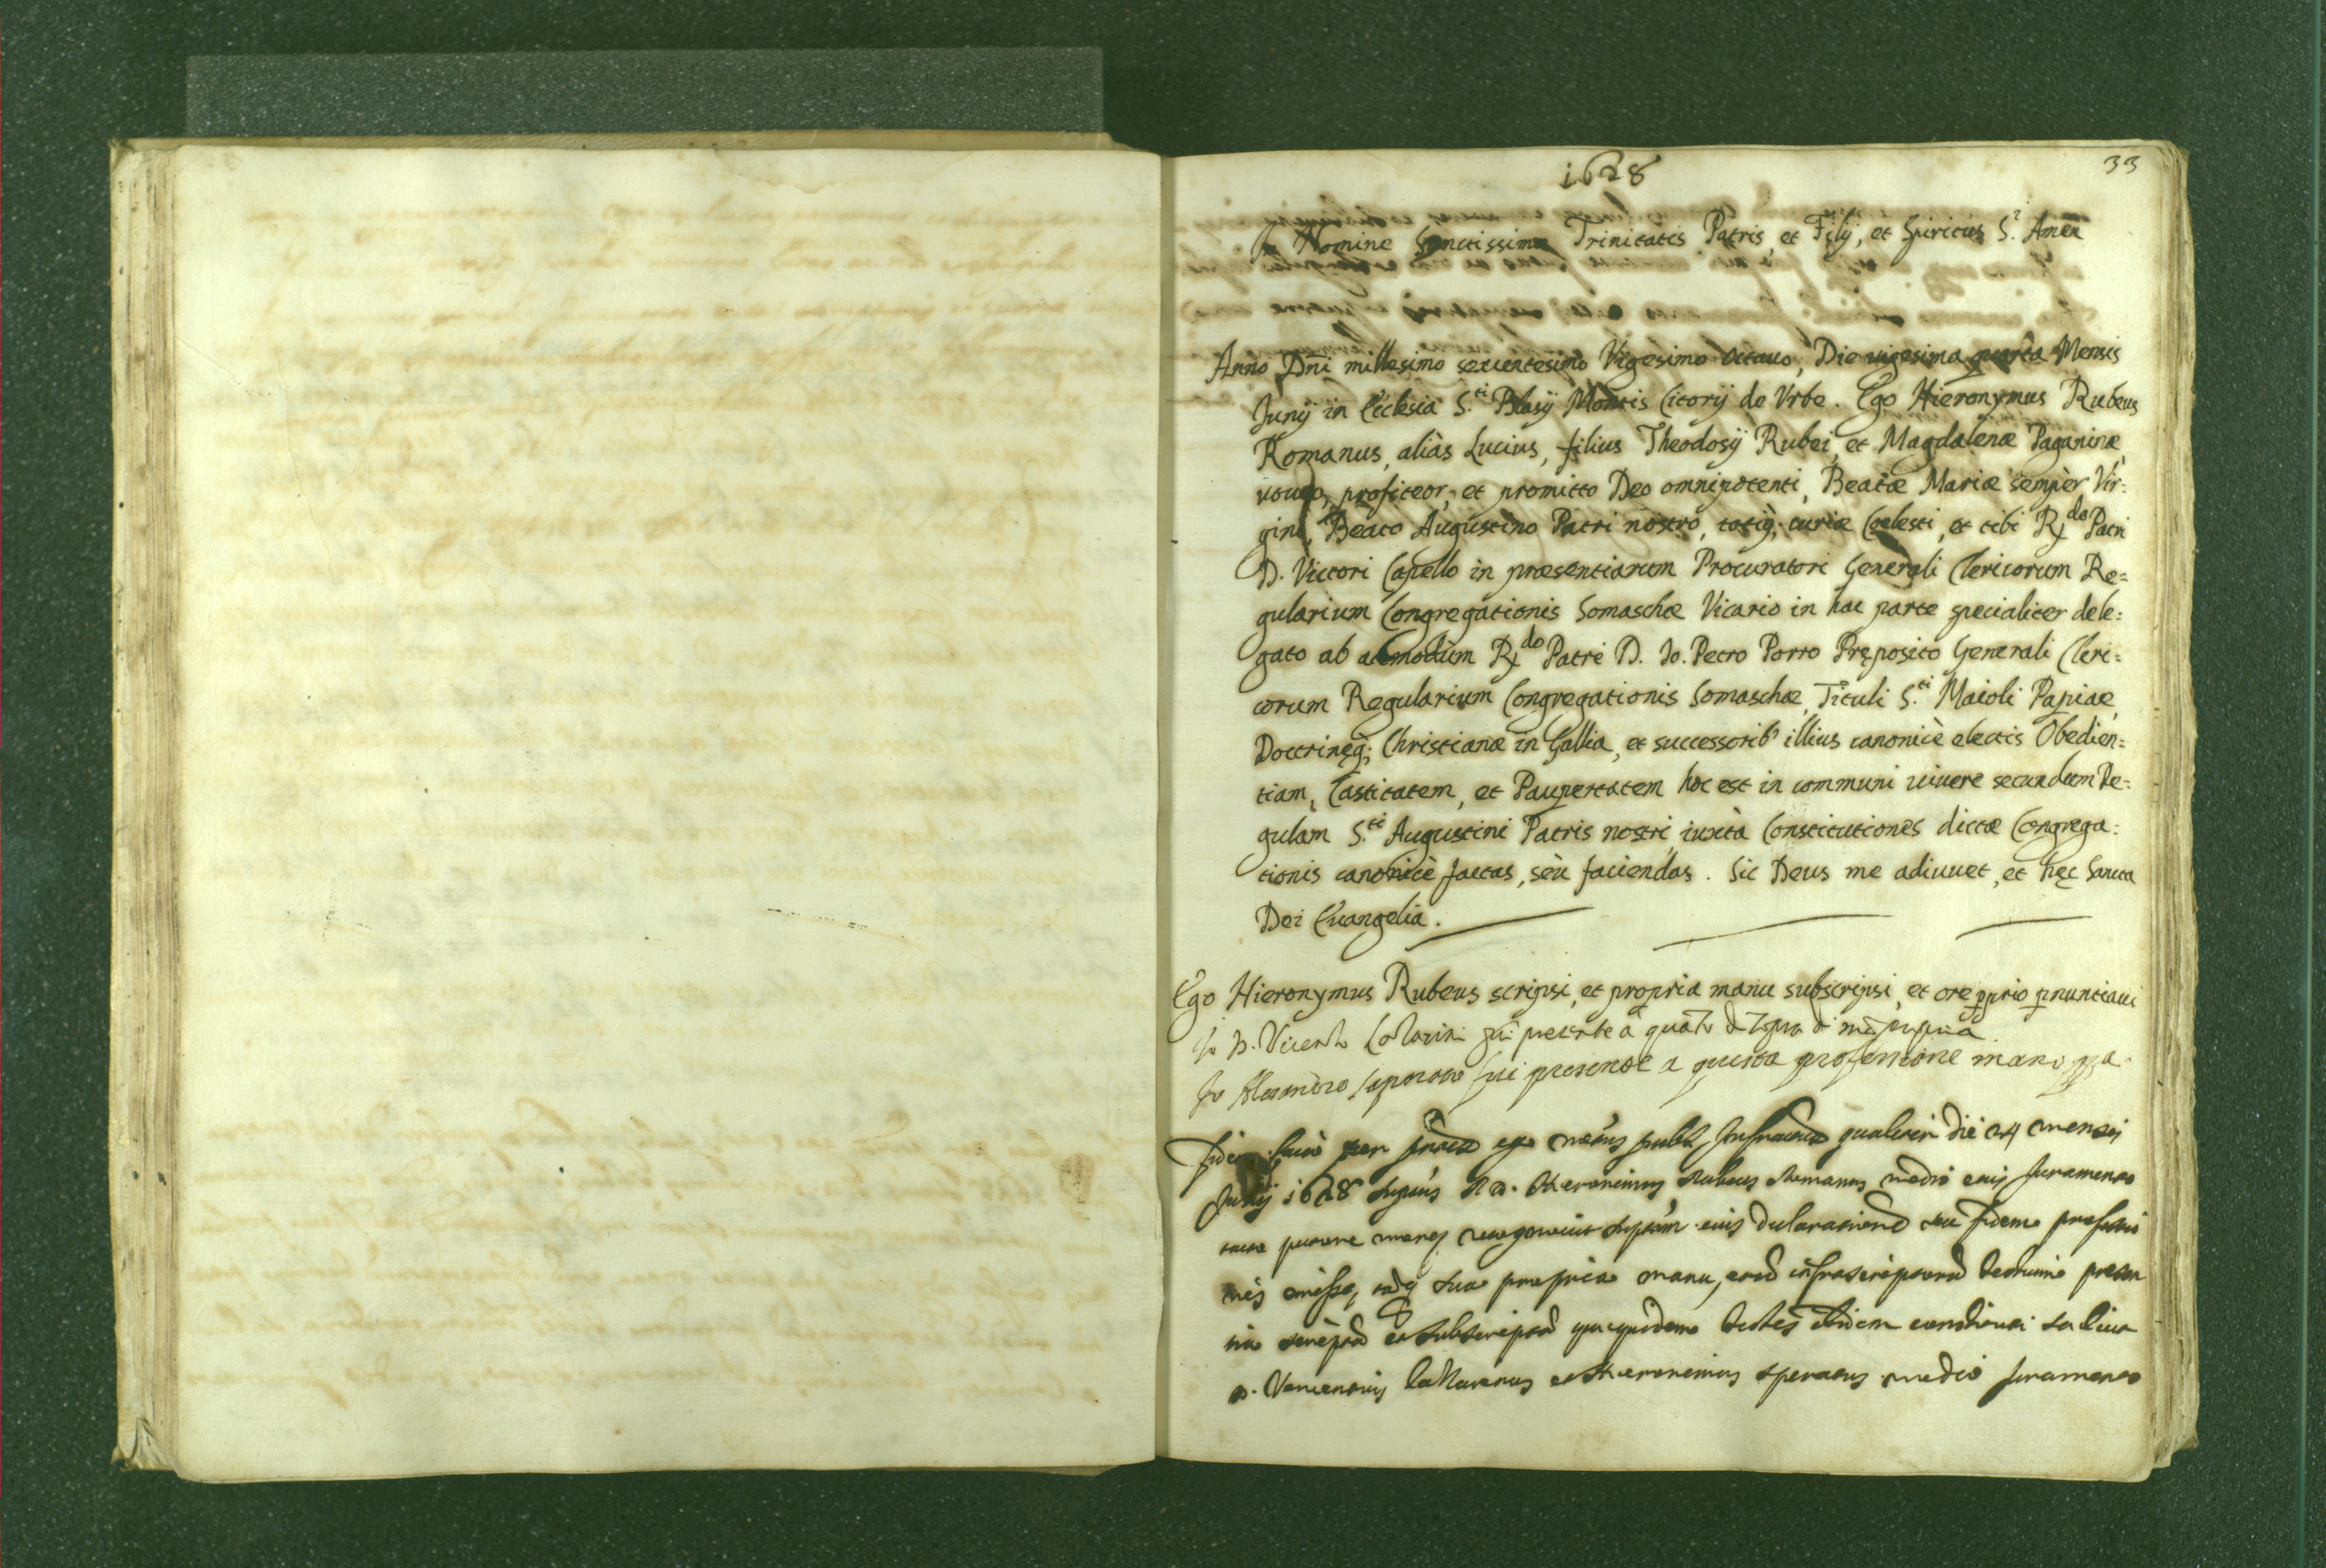 33
1628
In Nomine Sanctissimæ Trinitatis Patris, et Filij, et Spiritus S.ti Amen
Anno Dñi millesimo sexcentesimo Vigesimo octauo, Die uigesima quarta Mensis
Junij in Ecclesia S.ti Blasij Montis Citorij de Vrbe. Ego Hieronymus Rubeus
Romanus, aliàs Lucius, filius Theodosij Rubei, et Magdalenæ Paganinæ,
voueo, profiteor, et promitto Deo omnipotenti, Beatæ Mariæ sempèr Vir=
gini, Beato Augustino Patri nostro, totiq; curiæ Cœlesti, et tibi R.do Patri
D. Victori Capello in præsentiarum Procuratori Generali Clericorum Re=
gularium Congregationis Somaschæ Vicario in hac parte specialiter dele=
gato ab admodum R.do Patre D. Io. Petro Porro Pręposito Generali Cleri=
corum Regularium Congregationis Somaschæ, Tituli S.ti Maioli Papiae,
Doctrinęq; Christianæ in Gallia, et successorib' illius canonicè electis Obedien=
tiam, Castitatem, et Paupertatem hoc est in communi uiuere secundum Re=
gulam S.ti Augustini Patris nostri, iuxtà Constitutiones dictæ Congrega=
tionis canonicè factas, sèu faciendas. Sic Deus me adiuuet, et hęc Sancta
Dei Euangelia.
Ego Hieronymus Rubeus scripsi, et propria manu subscripsi, et ore pprio pnuntiaui
Io D. Vicenzo fui presente a quāto di sopra
Io Alesandro fui presente a questa professione mano ppa
Fidem facio per ego publ. qualiter die 24 mensis
Junij 1628 D. Hieronimus Rubeus Romanus medio eius Juramento
tacto pectore more recognouit eius declarationē seu fidem professio
nis emisse, sua propria manu, infrascriptorū testium presen
tia scriptā et subscriptā testes ibidem
D. Vincentius et Hieronimus medio Juramento